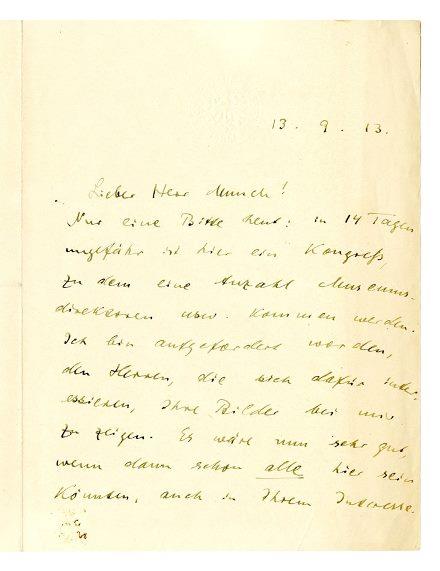 13. 9. 13.
Lieber Herr Munch!
Nur eine Bitte heut: in 14 Tagen
ungefähr ist hier ein Kongreß,
zu dem eine Anzahl Museums-
direktoren usw. kommen werden.
Ich bin aufgefordert worden,
den Herren, die sich dafür inter-
essieren, Ihre Bilder bei mir
zu zeigen. Es wäre nun sehr gut,
wenn dann schon alle hier sein
könnten, auch in Ihrem Interesse.